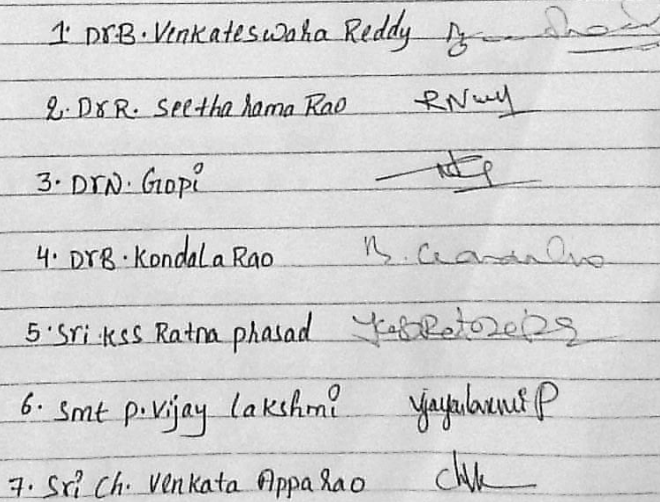 1. Dr B. Venkateswara Reddy
2. Dr R. Seetha Rama Rao
3. Dr N. Gopi
4. Dr B. Kondala Rao
5. Sri. KSS Ratna prasad
6. Smt P. Vijay lakshmi vijayalaxmi P
7. Sri Ch. Venkata Appa Rao